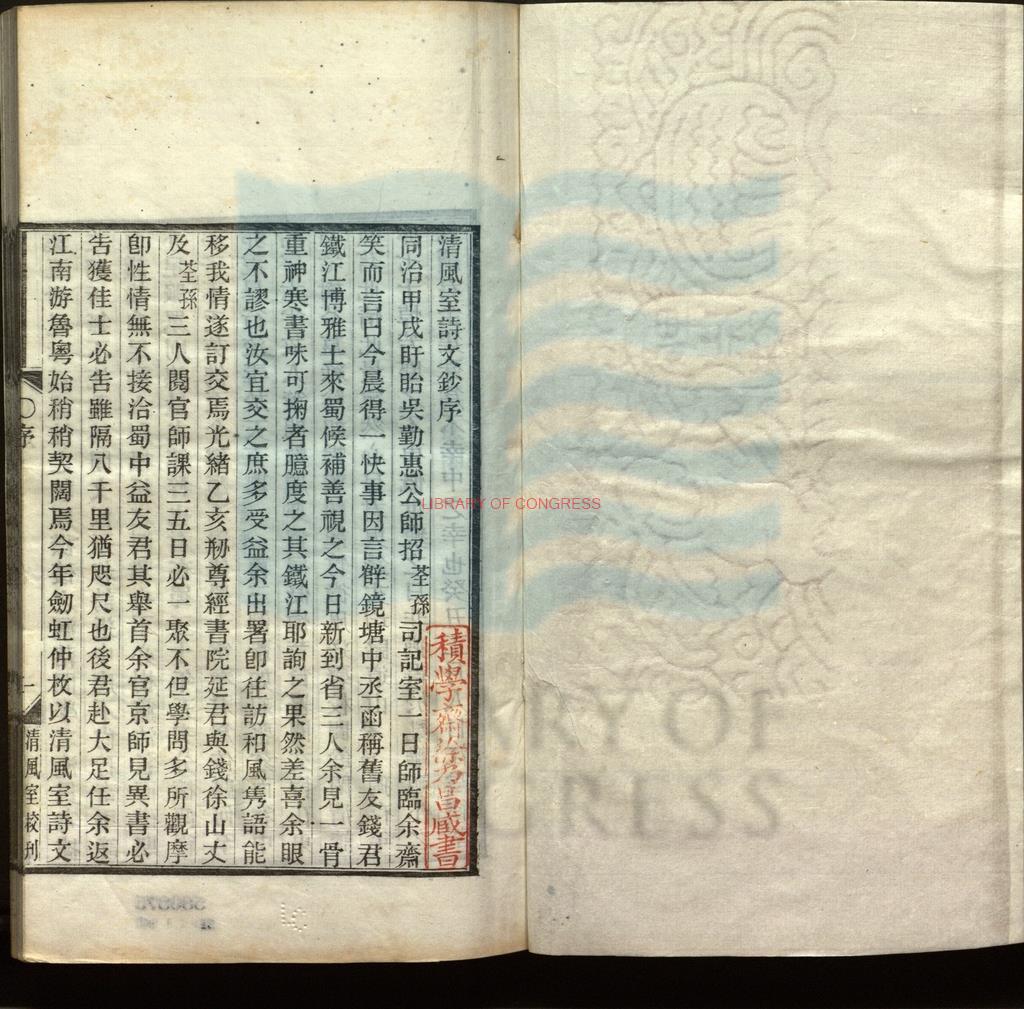 清風室詩文鈔序
同治甲戌盱眙吳勤惠公師招荃孫司記室一日師臨余齋
笑而言曰今晨得一快事因言辥鏡塘中丞函稱舊友錢君
鐵江博雅士來蜀候補善視之今日新到省三人余見一骨
重神寒書味可掬者臆度之其鐵江耶詢之果然差喜余眼
之不謬也汝宜交之庶多受益余出署卽往訪和風雋語能
移我情遂訂交焉光緒乙亥剙尊經書院延君與錢徐山丈
及荃孫三人閱官師課三五日必一聚不但學問多所觀摩
卽性情無不接洽蜀中益友君其舉首余官京師見異書必
告獲佳士必告雖隔八千里猶咫尺也後君赴大足任余返
江南游魯粵始稍稍契闊焉今年劒虹仲枚以清風室詩文
序
一
清風室校刊
積學齋徐乃昌藏書
LIBRARY OF CONGRESS